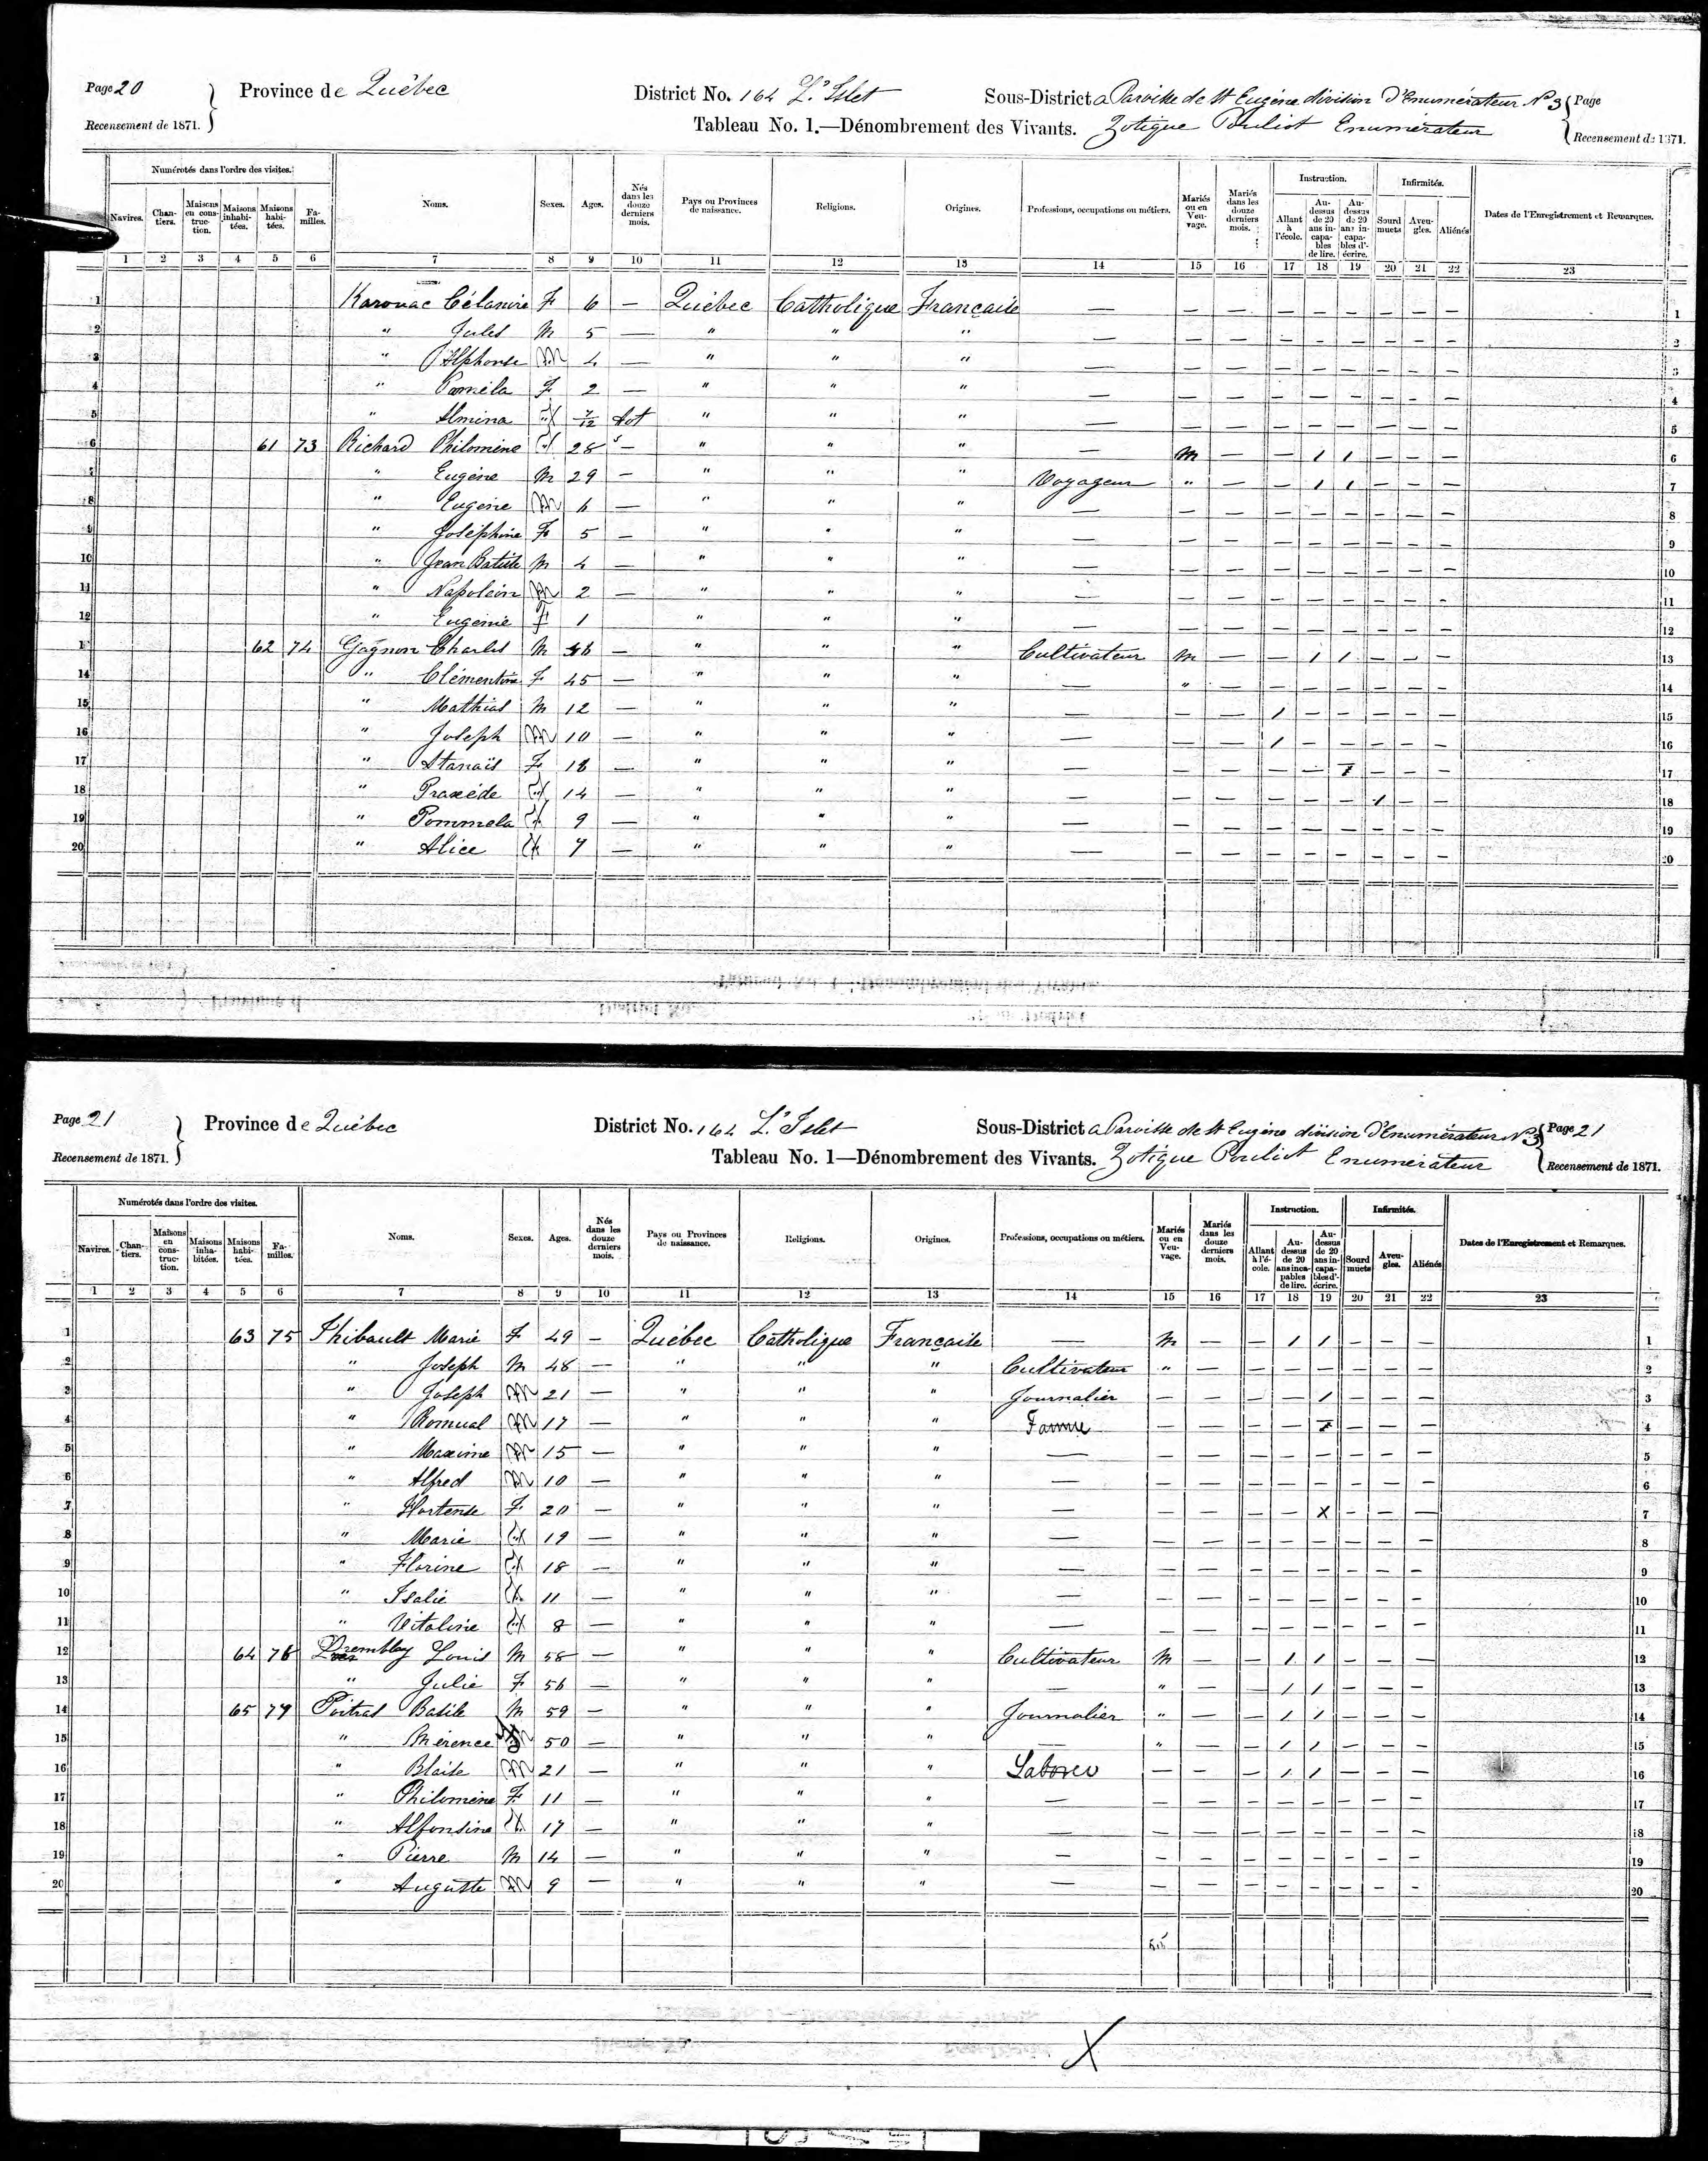 Page 20 Province de Québec District No. 164 L'Islet Sous-District a Paroisse de St Eugène division D'Enumérateur No 3 Page
Recensement de 1871. Tableau No. 1.—Dénombrement des Vivants. Zotique Pouliot Enumérateur Recensement de 1871.
Numérotés dans l'ordre des visites. Instruction. Infirmités.
Navires. Chantiers. Maisons en construction. Maisons inhabitées. Maisons habitées. Familles. Noms. Sexes. Ages. Nés dans les douze derniers mois. Pays ou Provinces de naissance. Religions. Origines. Professions, occupations ou métiers. Mariés ou en Veuvage. Mariés dans les douze derniers mois. Allant à l'école. Au-dessus de 20 ans incapables de lire. Au-dessus de 20 ans incapables d'écrire. Sourd muets Aveugles. Aliénés Dates de l'Enregistrement et Remarques.
1 2 3 4 5 6 7 8 9 10 11 12 13 14 15 16 17 18 19 20 21 22 23
1 Karouac Célanire F 6 — Québec Catholique Française — — — — — — — — — 1
2 " Jules M 5 — " " " — — — — — — — — — 2
3 " Alphonse M 4 — " " " — — — — — — — — — 3
4 " Paméla F 2 — " " " — — — — — — — — — 4
5 " Almina F 7/12 " " " — — — — — — — — — 5
6 61 73 Richard Philomène F 28 — " " " — M — — 1 1 — — — 6
7 " Eugène M 29 — " " " Voyageur " — — 1 1 — — — 7
8 " Eugène M 6 — " " " — — — — — — — — — 8
9 " Joséphine F 5 — " " " — — — — — — — — — 9
10 " Jean Batiste M 4 — " " " — — — — — — — — — 10
11 " Napoléon M 2 — " " " — — — — — — — — — 11
12 " Eugénie F 1 " " " — — — — — — — — — 12
13 62 74 Gagnon Charles M — " " " Cultivateur M — — 1 1 — — — 13
14 " Clémentine F 45 — " " " — " — — — — — — — 14
15 " Mathias M 12 — " " " — — — 1 — — — — — 15
16 " Joseph M 10 — " " " — — — 1 — — — — — 16
17 " Atanaïs F 18 — " " " — — — — — 1 — — — 17
18 " Praxède F 14 — " " " — — — — — — 1 — — 18
19 " Pommela F 9 — " " " — — — — — — — — — 19
20 " Alice F 7 — " " " — — — — — — — — — 20
Page 21 Province de Québec District No. 164 L'Islet Sous-District a Paroisse de St Eugène division D'Enumérateur No 3 Page 21
Recensement de 1871. Tableau No. 1—Dénombrement des Vivants. Zotique Pouliot Enumérateur Recensement de 1871.
Numérotés dans l'ordre des visites. Instruction. Infirmités.
Navires. Chantiers. Maisons en construction. Maisons inhabitées. Maisons habitées. Familles. Noms. Sexes. Ages. Nés dans les douze derniers mois. Pays ou Provinces de naissance. Religions. Origines. Professions, occupations ou métiers. Mariés ou en Veuvage. Mariés dans les douze derniers mois. Allant à l'école. Au-dessus de 20 ans incapables de lire. Au-dessus de 20 ans incapables d'écrire. Sourd muets Aveugles. Aliénés Dates de l'Enregistrement et Remarques.
1 2 3 4 5 6 7 8 9 10 11 12 13 14 15 16 17 18 19 20 21 22 23
1 63 75 Thibault Marie F 49 — Québec Catholique Française — M — — 1 1 — — — 1
2 " Joseph M 48 — " " " Cultivateur " — — — — — — — 2
3 " Joseph M 21 — " " " Journalier — — — — 1 — — — 3
4 " Romual M 17 — " " " — — — — — — — 4
5 " Maxime M 15 — " " " — — — — — — — — — 5
6 " Alfred M 10 — " " " — — — — — — — — — 6
7 " Hortense F 20 — " " " — — — — — X — — — 7
8 " Marie F 19 — " " " — — — — — — — — — 8
9 " Florine F 18 — " " " — — — — — — — — — 9
10 " Isalie F 11 — " " " — — — — — — — — — 10
11 " Vitaline F 8 — " " " — — — — — — — — — 11
12 64 76 Trembley Louis M 58 — " " " Cultivateur M — — 1 1 — — — 12
13 " Julie F 56 — " " " — " — — 1 1 — — — 13
14 65 77 Poitras Basile M 59 — " " " Journalier " — — 1 1 — — — 14
15 " Mérence 50 — " " " — " — — 1 1 — — — 15
16 " Blaise M 21 — " " " Labore — — — 1 1 — — — 16
17 " Philomène F 11 — " " " — — — — — — — — — 17
18 " Alfonsine F 17 — " " " — — — — — — — — — 18
19 " Pierre M 14 — " " " — — — — — — — — — 19
20 " Auguste M 9 — " " " — — — — — — — — — 20
X